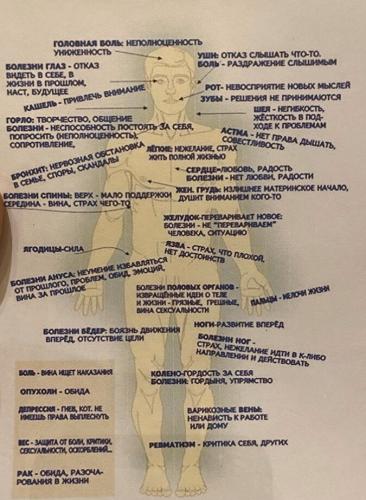 ГОЛОВНАЯ БОЛЬ: НЕПОЛНОЦЕННОСТЬ
УНИЖЕННОСТЬ
УШИ: ОТКАЗ СЛЫШАТЬ ЧТО-ТО.
БОЛЬ - РАЗДРАЖЕНИЕ СЛЫШИМЫМ
БОЛЕЗНИ ГЛАЗ - ОТКАЗ
ВИДЕТЬ В СЕБЕ, В
ЖИЗНИ В ПРОШЛОМ,
НАСТ, БУДУЩЕЕ
РОТ- НЕВОСПРИЯТИЕ НОВЫХ МЫСЛЕЙ
ЗУБЫ - РЕШЕНИЯ НЕ ПРИНИМАЮТСЯ
КАШЕЛЬ - ПРИВЛЕЧЬ ВНИМАНИЕ
ШЕЯ - НЕГИБКОСТЬ,
ЖЁСТКОСТЬ В ПОД-
ХОДЕ К ПРОБЛЕМАМ
ГОРЛО: ТВОРЧЕСТВО, ОБЩЕНИЕ
БОЛЕЗНИ - НЕСПОСОБНОСТЬ ПОСТОЯТЬ ЗА СЕБЯ,
ПОПРОСИТЬ (НЕПОЛНОЦЕННОСТЬ),
СОПРОТИВЛЕНИЕ,
АСТМА - НЕТ ПРАВА ДЫШАТЬ,
СОВЕСТЛИВОСТЬ
БРОНХИТ: НЕРВОЗНАЯ ОБСТАНОВКА
В СЕМЬЕ, СПОРЫ, СКАНДАЛЫ
ЛЁГКИЕ: НЕЖЕЛАНИЕ, СТРАХ
ЖИТЬ ПОЛНОЙ ЖИЗНЬЮ
СЕРДЦЕ-ЛЮБОВЬ, РАДОСТЬ
БОЛЕЗНИ - НЕТ ЛЮБВИ, РАДОСТИ
БОЛЕЗНИ СПИНЫ: ВЕРХ - МАЛО ПОДДЕРЖКИ
СЕРЕДИНА - ВИНА, СТРАХ ЧЕГО-ТО
ЖЕН. ГРУДЬ: ИЗЛИШНЕЕ МАТЕРИНСКОЕ НАЧАЛО,
ДУШИТ ВНИМАНИЕМ КОГО-ТО
ЖЕЛУДОК-ПЕРЕВАРИВАЕТ НОВОЕ:
БОЛЕЗНИ - НЕ "ПЕРЕВАРИВАЕМ"
ЧЕЛОВЕКА, СИТУАЦИЮ
ЯГОДИЦЫ-СИЛА
ЯЗВА - СТРАХ, ЧТО ПЛОХОЙ,
НЕТ ДОСТОИНСТВ
БОЛЕЗНИ АНУСА: НЕУМЕНИЕ ИЗБАВЛЯТЬСЯ
ОТ ПРОШЛОГО, ПРОБЛЕМ, ОБИД, ЭМОЦИЙ,
ВИНА ЗА ПРОШЛОЕ
БОЛЕЗНИ ПОЛОВЫХ ОРГАНОВ -
ИЗВРАЩЁННЫЕ ИДЕИ О ТЕЛЕ
И ЖИЗНИ - ГРЯЗНЫЕ, ГРЕШНЫЕ,
ВИНА СЕКСУАЛЬНОСТИ
ПАЛЬЦЫ - МЕЛОЧИ ЖИЗНИ
БОЛЕЗНИ БЁДЕР: БОЯЗНЬ ДВИЖЕНИЯ
ВПЕРЁД, ОТСУТСТВИЕ ЦЕЛИ
НОГИ-РАЗВИТИЕ ВПЕРЁД
БОЛЕЗНИ НОГ -
СТРАХ, НЕЖЕЛАНИЕ ИДТИ В К-ЛИБО
НАПРАВЛЕНИИ И ДЕЙСТВОВАТЬ
БОЛЬ - ВИНА ИЩЕТ НАКАЗАНИЯ
КОЛЕНО-ГОРДОСТЬ ЗА СЕБЯ
БОЛЕЗНИ: ГОРДЫНЯ, УПРЯМСТВО
ОПУХОЛИ - ОБИДА
ДЕПРЕССИЯ - ГНЕВ, КОТ. НЕ
ИМЕЕШЬ ПРАВА ВЫПЛЕСНУТЬ
ВАРИКОЗНЫЕ ВЕНЫ:
НЕНАВИСТЬ К РАБОТЕ
ИЛИ ДОМУ
ВЕС - ЗАЩИТА ОТ БОЛИ, КРИТИКИ,
СЕКСУАЛЬНОСТИ, ОСКОРБЛЕНИЙ...
РЕВМАТИЗМ - КРИТИКА СЕБЯ, ДРУГИХ
РАК - ОБИДА, РАЗОЧА-
РОВАНИЯ В ЖИЗНИ